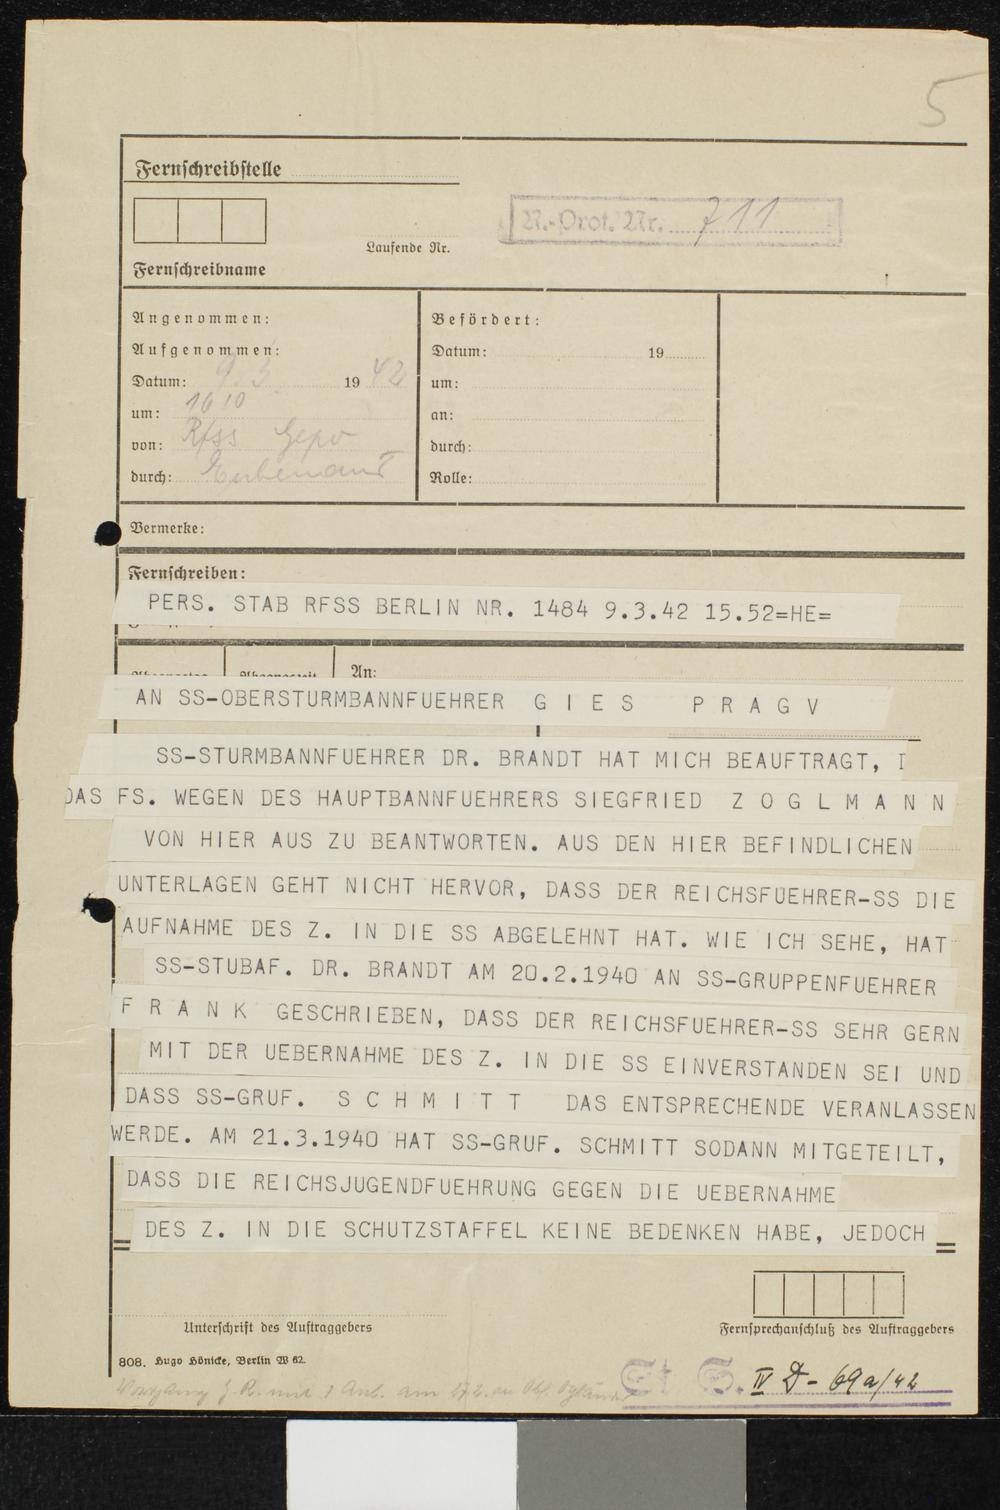 5
Fernschreibstelle
N.-Prot. Nr. 711
Laufende Nr.
Fernschreibname
Angenommen:
Aufgenommen:
Datum: 9.3 1942
um: 16 10
von: Rfss Gepo
durch:
Befördert:
Datum: 19
um:
an:
durch:
Rolle:
Vermerke:
Fernschreiben:
PERS. STAB RFSS BERLIN NR. 1484 9.3.42 15.52=HE=
An:
AN SS-OBERSTURMBANNFUEHRER G I E S P R A G V
SS-STURMBANNFUEHRER DR. BRANDT HAT MICH BEAUFTRAGT,
DAS FS. WEGEN DES HAUPTBANNFUEHRERS SIEGFRIED Z O G L M A N N
VON HIER AUS ZU BEANTWORTEN. AUS DEN HIER BEFINDLICHEN
UNTERLAGEN GEHT NICHT HERVOR, DASS DER REICHSFUEHRER-SS DIE
AUFNAHME DES Z. IN DIE SS ABGELEHNT HAT. WIE ICH SEHE, HAT
SS-STUBAF. DR. BRANDT AM 20.2.1940 AN SS-GRUPPENFUEHRER
F R A N K GESCHRIEBEN, DASS DER REICHSFUEHRER-SS SEHR GERN
MIT DER UEBERNAHME DES Z. IN DIE SS EINVERSTANDEN SEI UND
DASS SS-GRUF. S C H M I T T DAS ENTSPRECHENDE VERANLASSEN
WERDE. AM 21.3.1940 HAT SS-GRUF. SCHMITT SODANN MITGETEILT,
DASS DIE REICHSJUGENDFUEHRUNG GEGEN DIE UEBERNAHME
DES Z. IN DIE SCHUTZSTAFFEL KEINE BEDENKEN HABE, JEDOCH
Unterschrift des Auftraggebers
Fernsprechanschluß des Auftraggebers
808. Hugo Hönicke, Berlin W 62.
St S. IV D - 69a/42